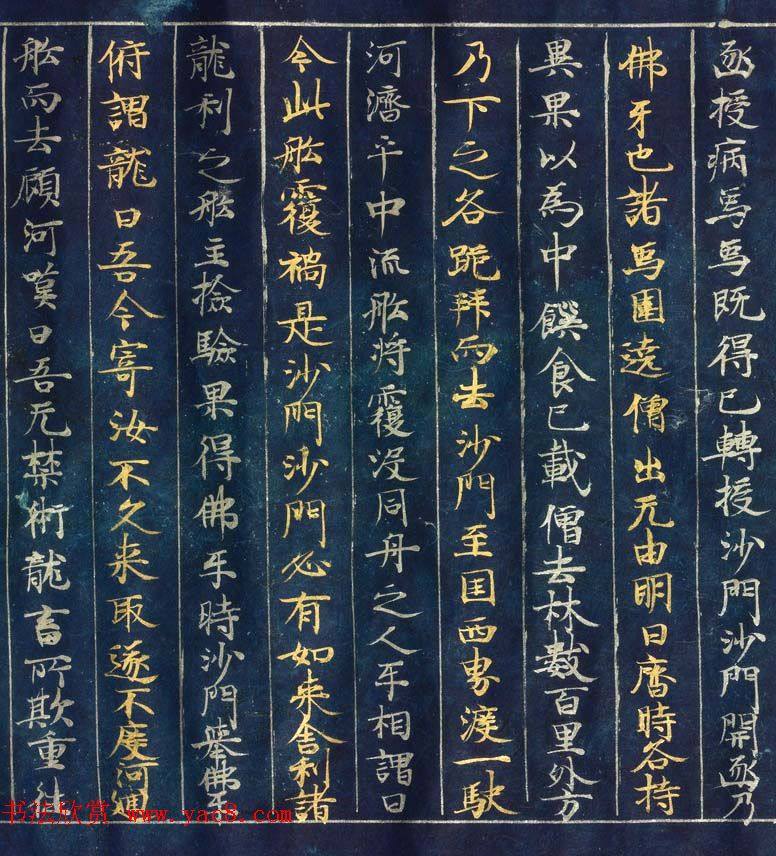 函授病焉焉既得已轉授沙門沙門開函乃
佛牙也諸焉圍遶僧出无由明日齋時各持
異果以為中饌食已載僧去林數百里外方
乃下之各跪拜而去沙門至国西界渡一駛
河濟乎中流舩將覆没同舟之人乎相謂曰
今此舩覆禍是沙門沙門必有如来舍利諸
龍利之舩主撿驗果得佛牙時沙門舉佛牙
俯謂龍曰吾今寄汝不久来取遂不度河迴
舩而去顧河嘆曰吾无禁術龍畜所欺重往
书法欣赏 www.yac8.com